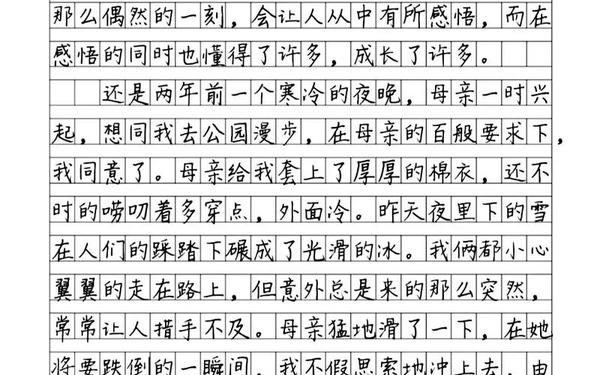 那么偶然的一刻，会让人从中有所感悟，而在
感悟的同时也懂得了许多，成长了许多。
还是两年前一个寒冷的夜晚，母亲一时兴
起，想同我去公园漫步，在母亲的百般要求下，
我同意了。母亲给我套上了厚厚的棉衣，还不
时的唠叨着多穿点，外面冷。昨天夜里下的雪
在人们的踩踏下碾成了光滑的冰。我俩都小心
翼翼的走在路上，但意外总是来的那么突然，
常常让人措手不及。母亲猛地滑了一下，在她
将要跌倒的一瞬间，我不假思索地冲上去，由